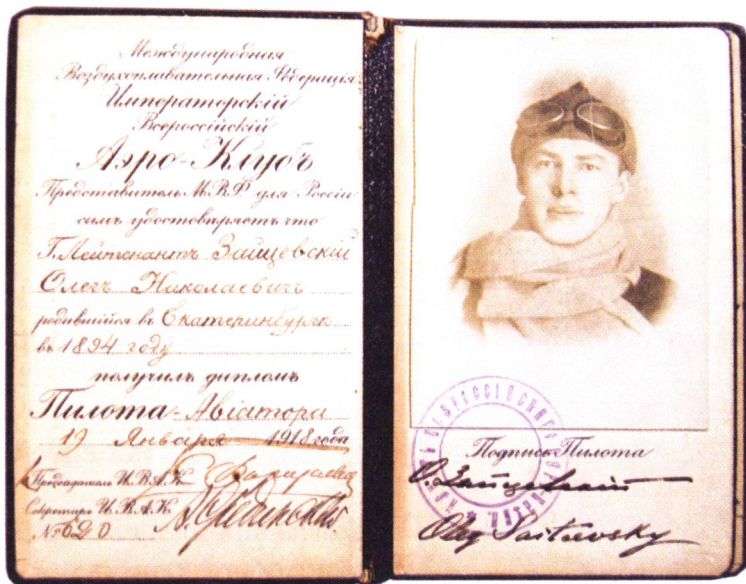 Международная
Воздухоплавательная Федерація
Императорскій
Всероссійскій
Аэро-Клубъ
Представитель М.В.Ф. для Россіи
симъ удостовѣряетъ что
Г. Лейтенантъ Зайцевскій
Олегъ Николаевичъ
родившійся въ Екатеринбургѣ
въ 1894 году
получилъ дипломъ
Пилота-Авіатора
19 Января 1918 года
Предсѣдатель И.В.А.К.
Секретарь И.В.А.К.
№ 620
Подпись Пилота
О. Зайцевскій
Oleg Saitzevsky